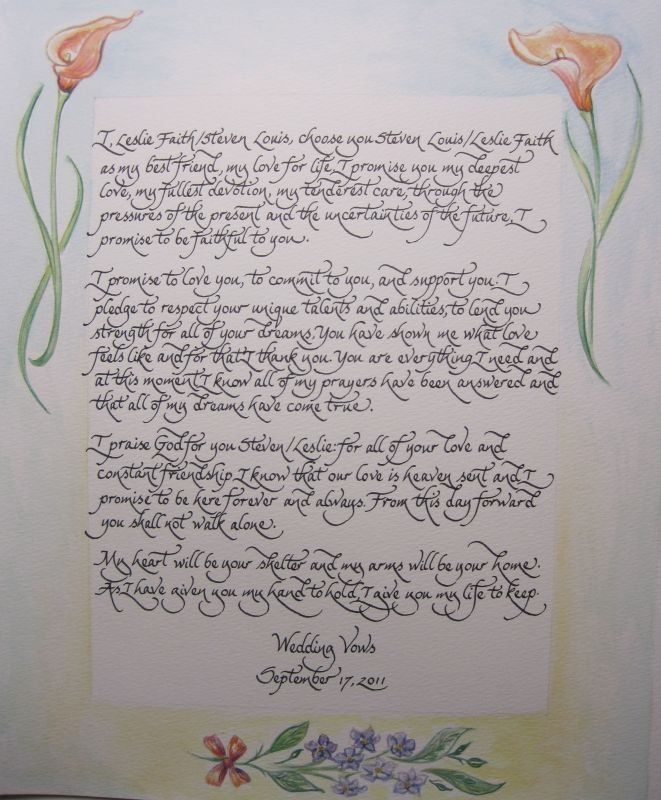 I, Leslie Faith/Steven Louis, choose you Steven Louis/Leslie Faith
as my best friend, my love for life, I promise you my deepest
love, my fullest devotion, my tenderest care, through the
pressures of the present and the uncertainties of the future, I
promise to be faithful to you.
I promise to love you, to commit to you, and support you. I
pledge to respect your unique talents and abilities, to lend you
strength for all of your dreams. You have shown me what love
feels like and for that I thank you. You are everything I need and
at this moment I know all of my prayers have been answered and
that all of my dreams have come true.
I praise God for you Steven/Leslie: for all of your love and
constant friendship. I know that our love is heaven sent and I
promise to be here forever and always. From this day forward
you shall not walk alone.
My heart will be your shelter and my arms will be your home.
As I have given you my hand to hold, I give you my life to keep.
Wedding Vows
September 17, 2011